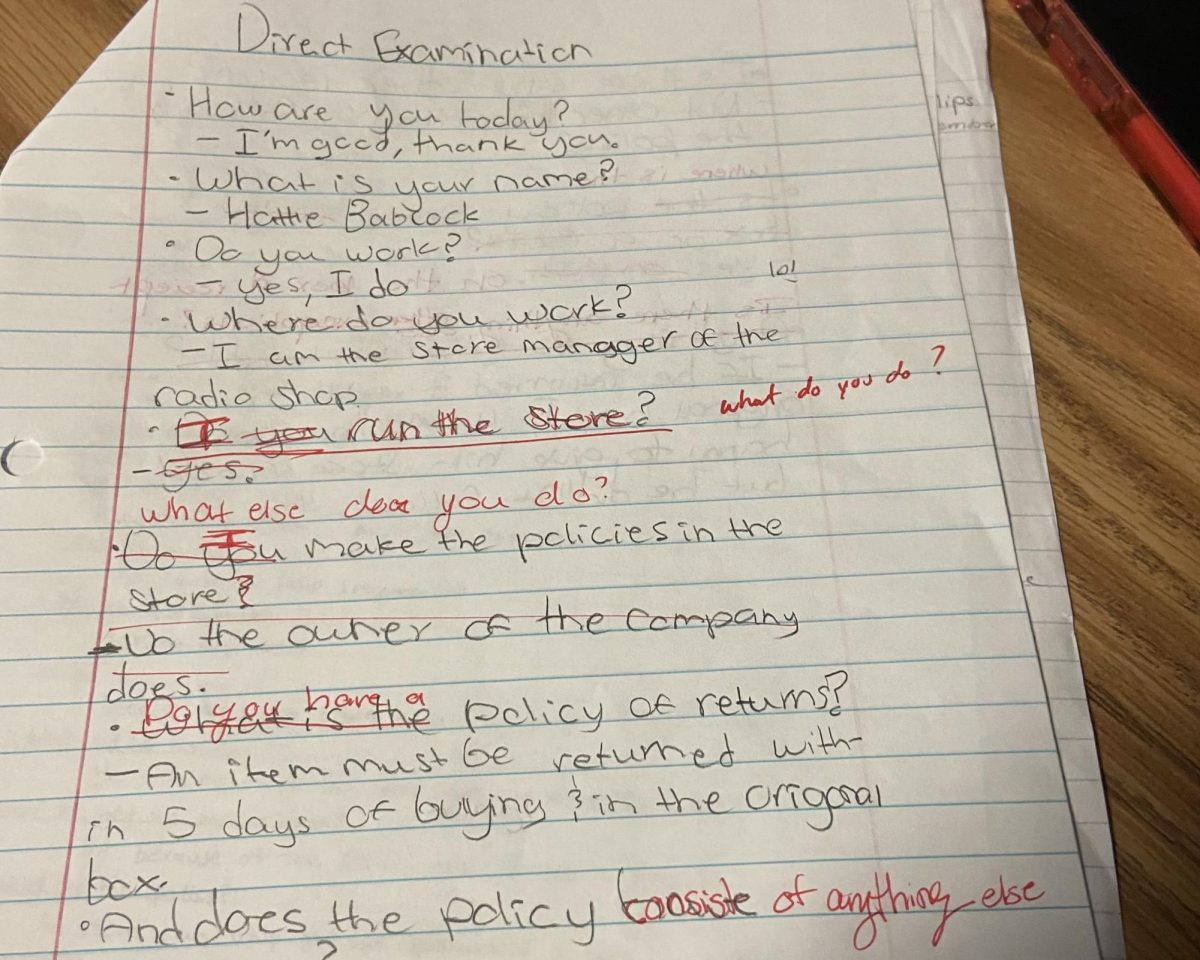 Direct Examination
· How are you today?
- I'm good, thank you.
· What is your name?
- Hattie Babcock
· Do you work?
- yes, I do
lol
· Where do you work?
- I am the store manager of the
radio shop.
· I run the store? what do you do?
- yes.
what else do you do?
· Do I make the policies in the
store?
- No the owner of the company
does.
· Do you have a policy of returns?
- An item must be returned with-
in 5 days of buying & in the origonal
box.
· And does the policy consiste of anything else
?
lips